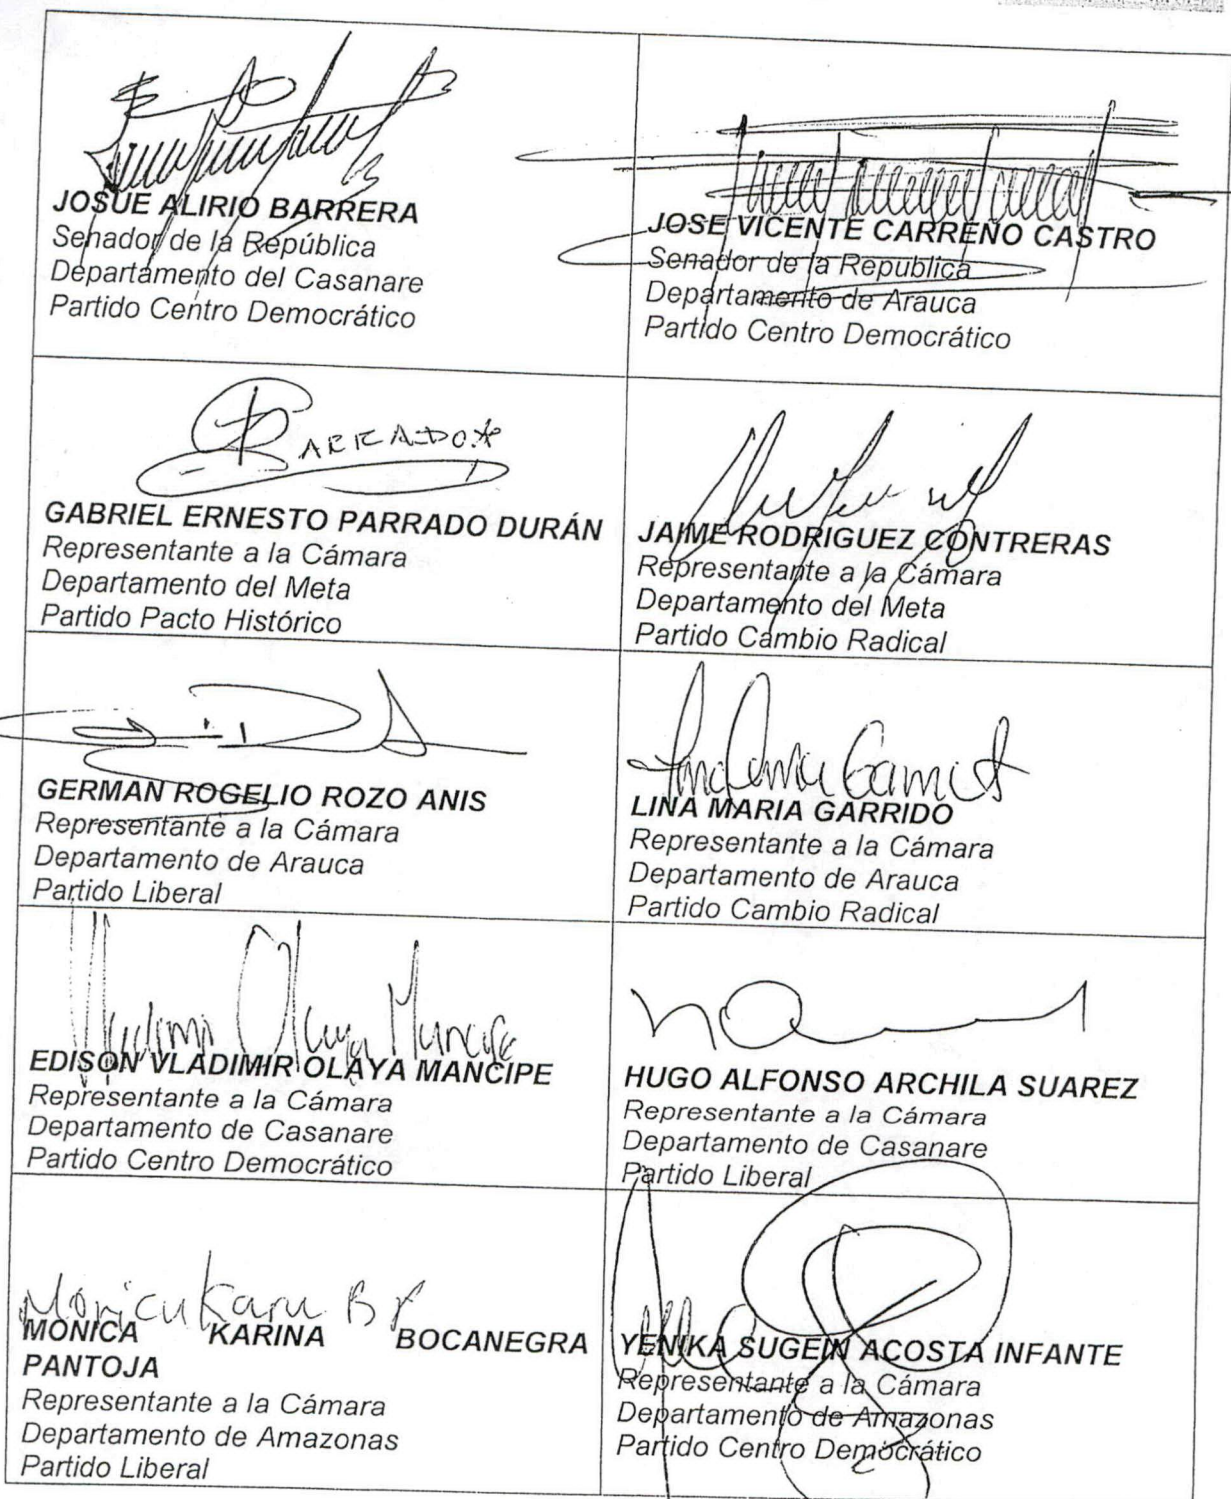 JOSUE ALIRIO BARRERA
Senador de la República
Departamento del Casanare
Partido Centro Democrático
JOSE VICENTE CARREÑO CASTRO
Senador de la Republica
Departamento de Arauca
Partido Centro Democrático
GABRIEL ERNESTO PARRADO DURÁN
Representante a la Cámara
Departamento del Meta
Partido Pacto Histórico
JAIME RODRIGUEZ CONTRERAS
Representante a la Cámara
Departamento del Meta
Partido Cambio Radical
GERMAN ROGELIO ROZO ANIS
Representante a la Cámara
Departamento de Arauca
Partido Liberal
LINA MARIA GARRIDO
Representante a la Cámara
Departamento de Arauca
Partido Cambio Radical
Vladimir Olaya Mancipe
EDISON VLADIMIR OLAYA MANCIPE
Representante a la Cámara
Departamento de Casanare
Partido Centro Democrático
HUGO ALFONSO ARCHILA SUAREZ
Representante a la Cámara
Departamento de Casanare
Partido Liberal
Monica Karina B P
MONICA KARINA BOCANEGRA
PANTOJA
Representante a la Cámara
Departamento de Amazonas
Partido Liberal
YENIKA SUGEIN ACOSTA INFANTE
Representante a la Cámara
Departamento de Amazonas
Partido Centro Democrático